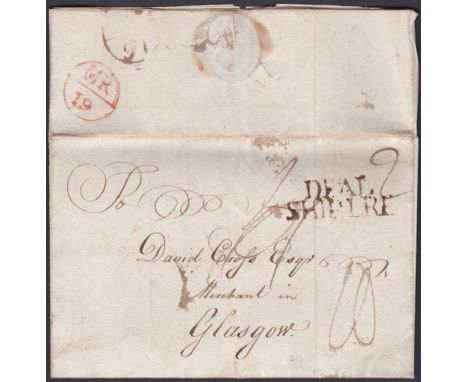 MR
19
To
DEAL
SHIP LRE
David Cross Esqr
Merchant in
Glasgow